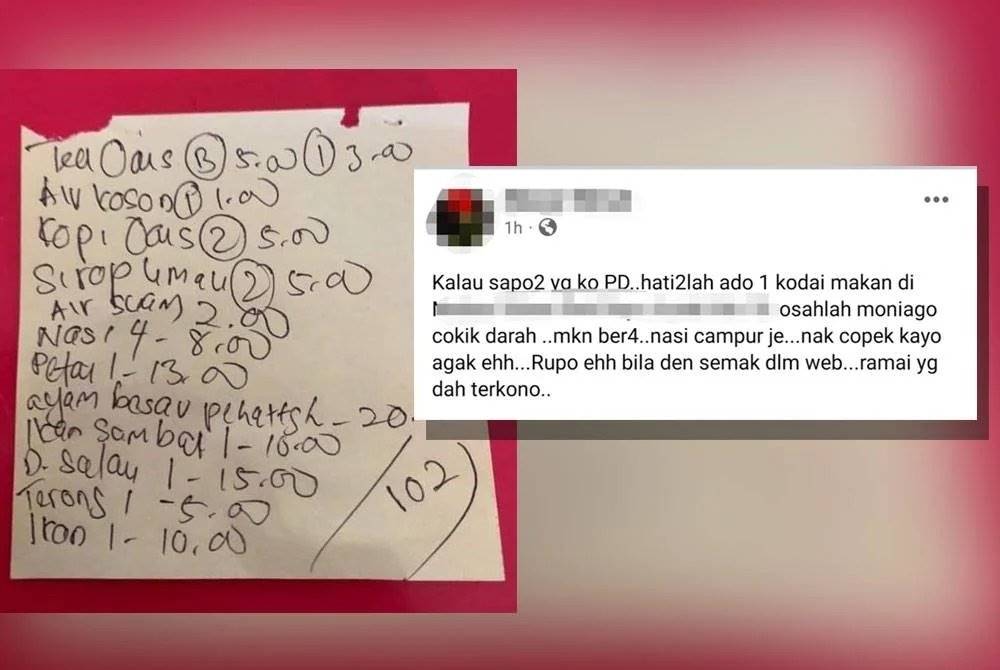 Tea Oais (B) 5.00 (1) 3.00
Air kosong (1) 1.00
Kopi Oais (2) 5.00
Sirop limau (2) 5.00
Air suam 2.00
Nasi 4 - 8.00
Petai 1 - 13.00
ayam besar - 20.
Ikan Sambal 1 - 10.00
D. Salay 1 - 15.00
Terong 1 - 5.00
Ikan 1 - 10.00
102
1h ·
Kalau sapo2 yg ko PD..hati2lah ado 1 kodai makan di
osahlah moniago
cokik darah ..mkn ber4..nasi campur je...nak copek kayo
agak ehh...Rupo ehh bila den semak dlm web...ramai yg
dah terkono..